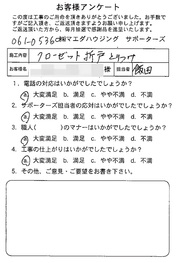 お客様アンケート
この度は工事のご用命を頂きありがとうございました。お手数で
すがご記入頂き、ご返送頂きますようお願い申し上げます。
ご返送頂いた方から、毎月抽選で感謝品を進呈いたします。
061-0536 ㈱マエダハウジング サポーターズ
施工内容 クローゼット折戸
お名前 様 担当者 飯田
1. 電話の対応はいかがでしたでしょうか?
a. 大変満足 b. 満足 c. やや不満 d. 不満
2. サポーターズ担当者の応対はいかがでしたでしょうか?
a. 大変満足 b. 満足 c. やや不満 d. 不満
3. 職人( )のマナーはいかがでしたでしょうか?
a. 大変満足 b. 満足 c. やや不満 d. 不満
4. 工事の仕上がりはいかがでしたでしょうか?
a. 大変満足 b. 満足 c. やや不満 d. 不満
5. その他、ご意見・ご要望をお聞かせ下さい。